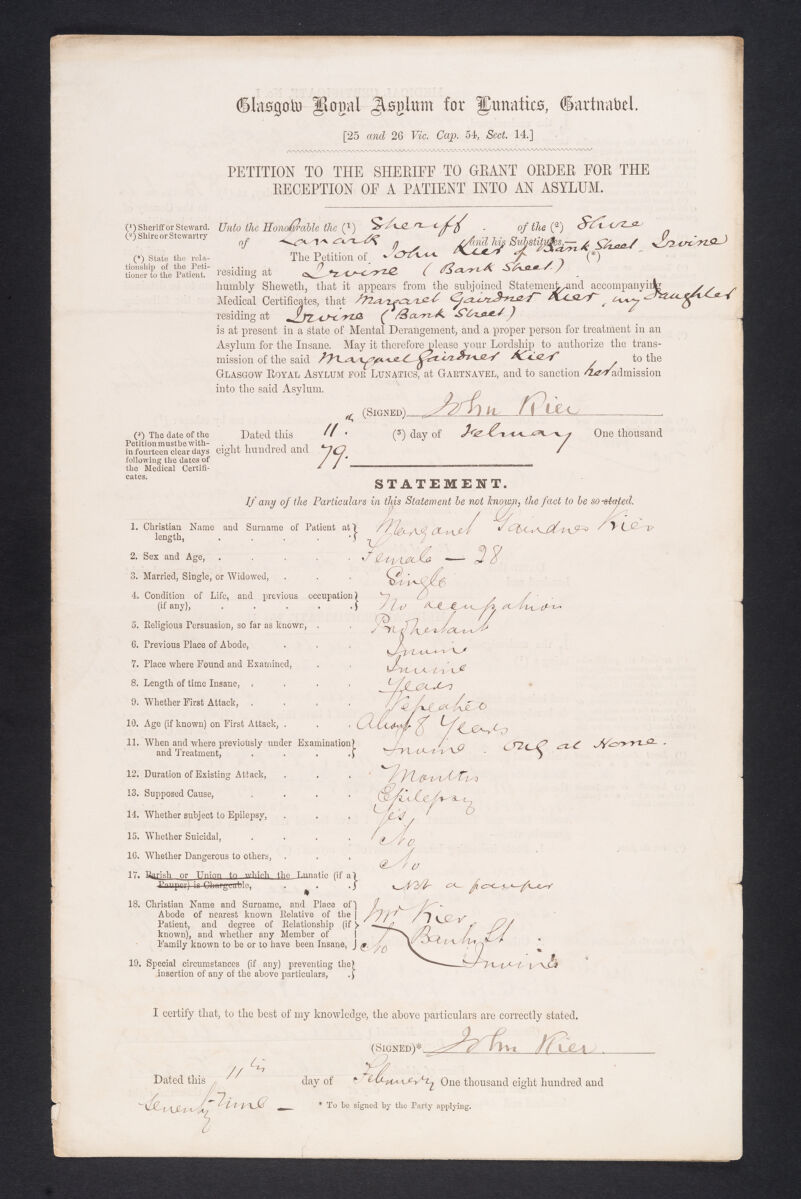 Glasgow Royal Asylum for Lunatics, Gartnabel.
[25 and 26 Vic. Cap. 54, Sect. 14.]
PETITION TO THE SHERIFF TO GRANT ORDER FOR THE
RECEPTION OF A PATIENT INTO AN ASYLUM.
(¹) Sheriff or Steward.
(²) Shire or Stewartry
Unto the Honourable the (¹) Sheriff of the (²) Shire
of Lanark and his Substitutes,
(³) State the rela-
tionship of the Peti-
tioner to the Patient.
The Petition of John Kier of Bank Street Irvine (³)
residing at Irvine (Bank Street)
humbly Sheweth, that it appears from the subjoined Statement and accompanying
Medical Certificates, that Margaret Gairdner Kier, my daughter
residing at Irvine (Bank Street)
is at present in a state of Mental Derangement, and a proper person for treatment in an
Asylum for the Insane. May it therefore please your Lordship to authorize the trans-
mission of the said Margaret Gairdner Kier to the
GLASGOW ROYAL ASYLUM FOR LUNATICS, at GARTNAVEL, and to sanction her admission
into the said Asylum.
(SIGNED) John Kier
(³) The date of the
Petition must be with-
in fourteen clear days
following the dates of
the Medical Certifi-
cates.
Dated this 11th (³) day of February One thousand
eight hundred and 79.
STATEMENT.
If any of the Particulars in this Statement be not known, the fact to be so stated.
1. Christian Name and Surname of Patient at length, Margaret Gairdner Kier
2. Sex and Age, Female — 28
3. Married, Single, or Widowed, Single
4. Condition of Life, and previous occupation (if any), No occupation
5. Religious Persuasion, so far as known, Protestant
6. Previous Place of Abode, Irvine
7. Place where Found and Examined, Irvine
8. Length of time Insane, Years
9. Whether First Attack, Repeated
10. Age (if known) on First Attack, About 8 Years
11. When and where previously under Examination and Treatment, Irvine. only at Home.
12. Duration of Existing Attack, Months
13. Supposed Cause, Epilepsy
14. Whether subject to Epilepsy, Yes
15. Whether Suicidal, No
16. Whether Dangerous to others, No
17. Parish or Union to which the Lunatic (if a Pauper) is Chargeable, Not a pauper
18. Christian Name and Surname, and Place of
Abode of nearest known Relative of the
Patient, and degree of Relationship (if
known), and whether any Member of
Family known to be or to have been Insane,
Mr Kier
Bank St
Irvine
No
19. Special circumstances (if any) preventing the
insertion of any of the above particulars,
I certify that, to the best of my knowledge, the above particulars are correctly stated.
(SIGNED)* John Kier.
Dated this 11th day of February One thousand eight hundred and
seventy nine — * To be signed by the Party applying.